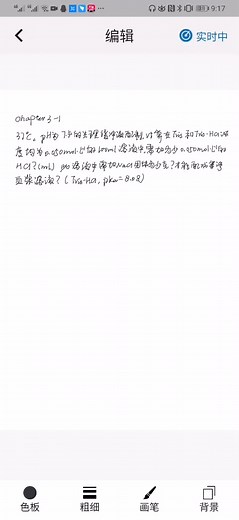 9:17
编辑
实时中
chapter 3-1
37℃, pH为7.4的生理缓冲液配制,计算在Tris和Tris·HCl浓
度均为0.050mol·L⁻¹的100ml溶液中,需加多少0.050mol·L⁻¹的
HCl?(ml) 溶液中需加NaCl固体多少克?才能配成等渗
溶液?(Tris·HCl, pka=8.08)
色板
粗细
画笔
背景